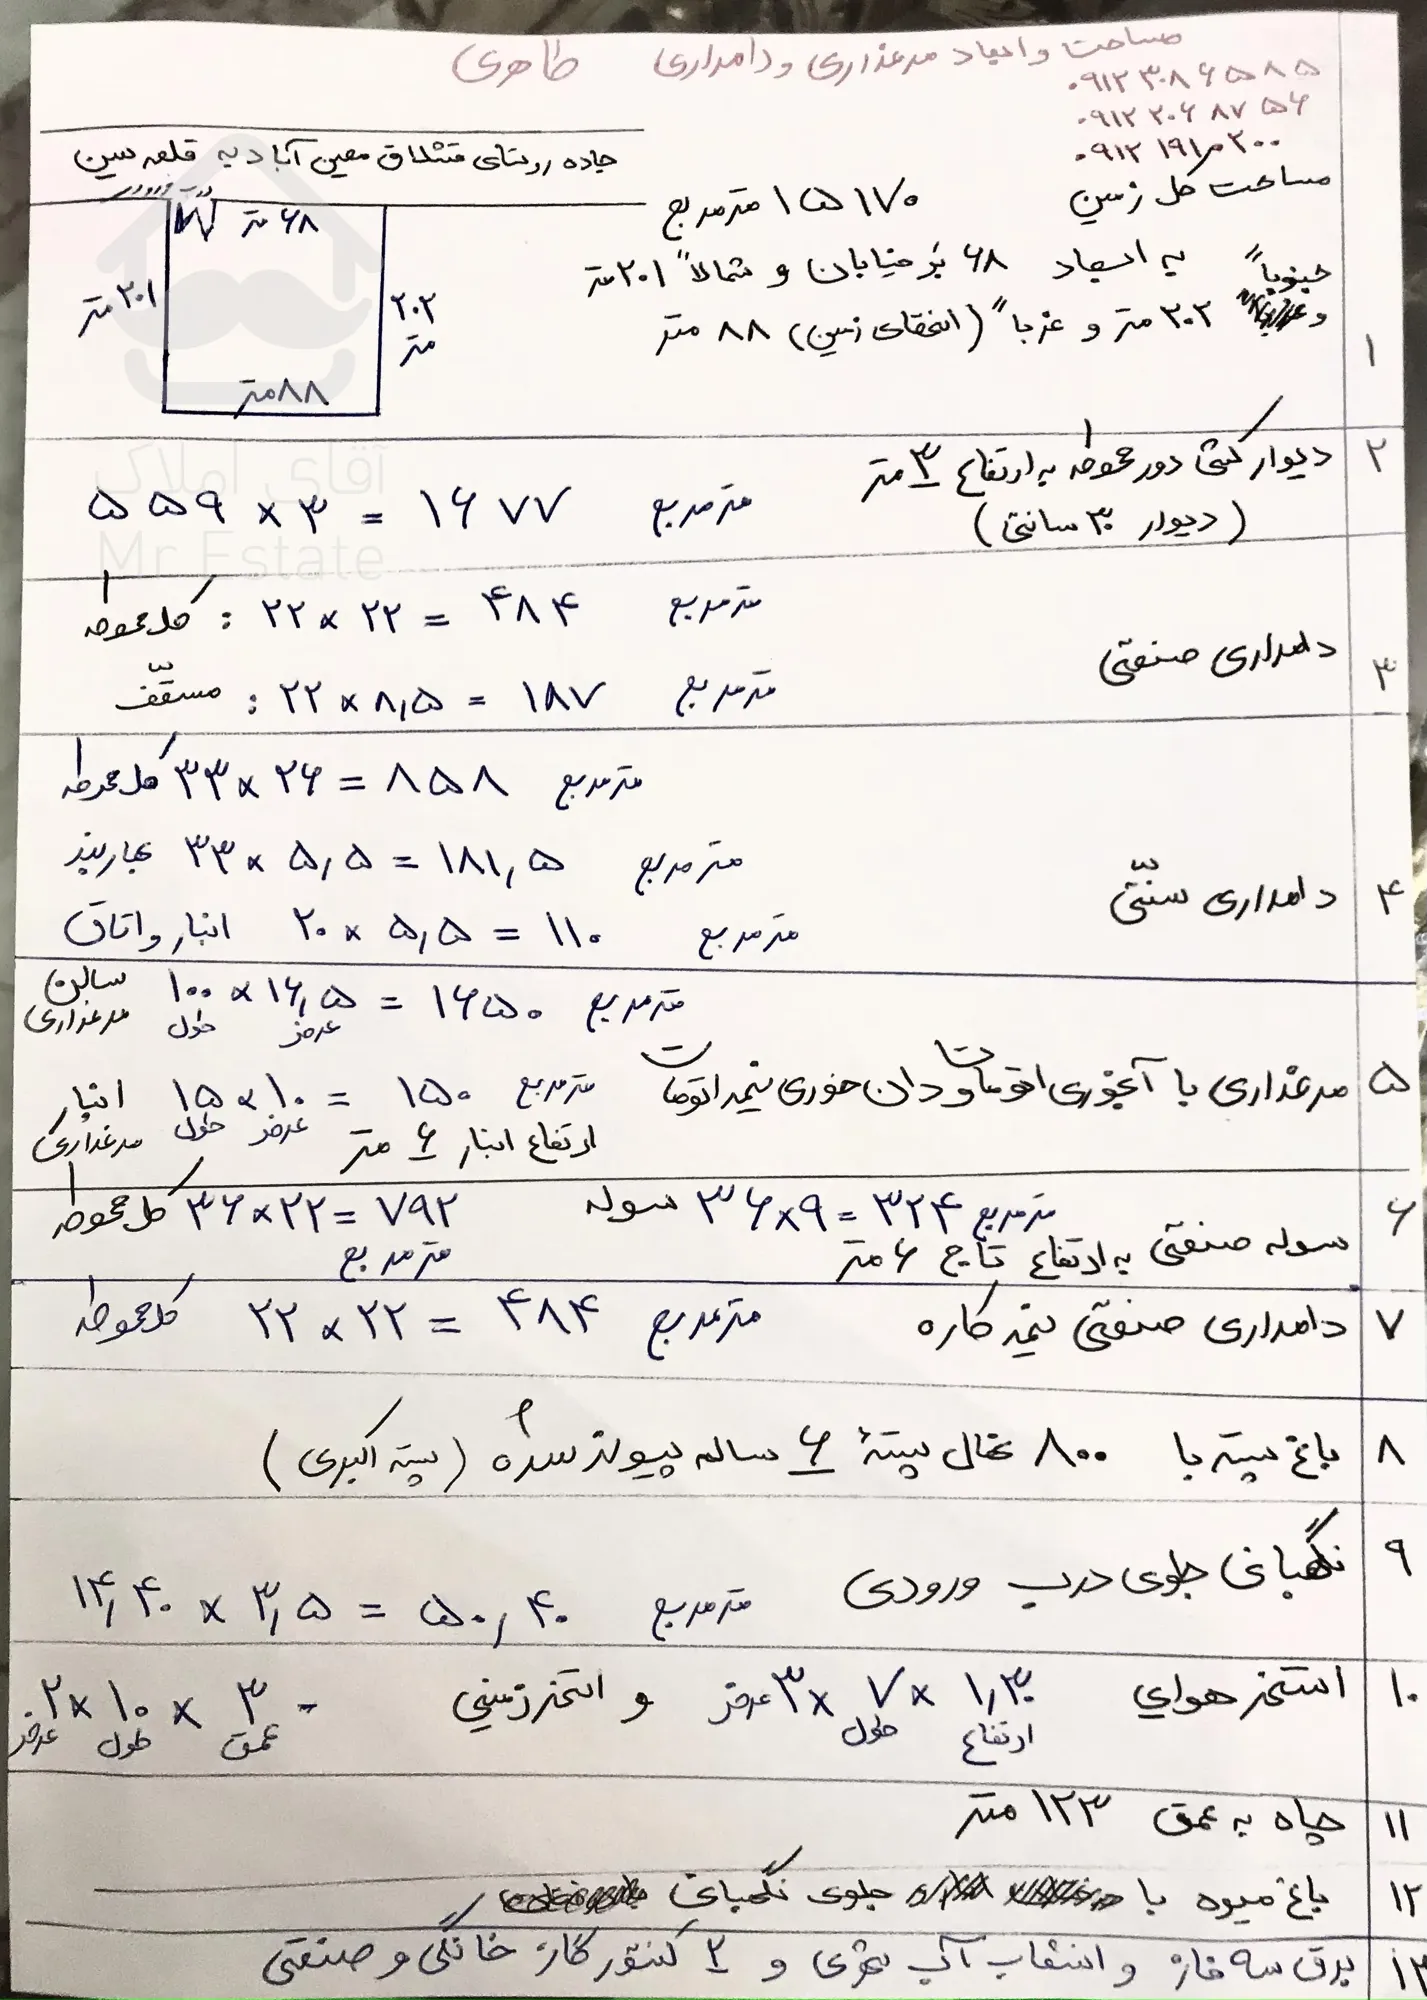 مساحت و ابعاد مرغداری و دامداری طاهری
۰۹۱۲ ۳۰۸ ۶۵ ۸۵
۰۹۱۲ ۲۰۶ ۸۷ ۵۶
۰۹۱۲ ۱۹۱ ۳۲۰۰
جاده روستای قشلاق معین آباد به قلعه سین
درب ورودی
۶۸ متر
۲۰۱ متر
۲۰۲ متر
۸۸ متر
۱ مساحت کل زمین ۱۵۱۷۰ مترمربع
به ابعاد ۶۸ بَر خیابان و شمالاً ۲۰۱ متر
و جنوباً ۲۰۲ متر و غرباً (انتهای زمین) ۸۸ متر
۲ دیوارکشی دور محوطه به ارتفاع ۳ متر
(دیوار ۳۰ سانتی)
۵۵۹ × ۳ = ۱۶۷۷ مترمربع
۳ دامداری صنعتی
کل محوطه : ۲۲ × ۲۲ = ۴۸۴ مترمربع
مسقّف : ۲۲ × ۸,۵ = ۱۸۷ مترمربع
۴ دامداری سنّتی
کل محوطه ۳۳ × ۲۶ = ۸۵۸ مترمربع
بهاربند ۳۳ × ۵,۵ = ۱۸۱,۵ مترمربع
انبار و اتاق ۲۰ × ۵,۵ = ۱۱۰ مترمربع
۵ مرغداری با آبخوری اتومات و دان خوری نیمه اتومات
سالن مرغداری ۱۰۰ × ۱۶,۵ = ۱۶۵۰ مترمربع
طول عرض
انبار مرغداری ۱۵ × ۱۰ = ۱۵۰ مترمربع
طول عرض ارتفاع انبار ۶ متر
۶ سوله صنعتی به ارتفاع تاج ۶ متر
سوله ۳۶×۹ = ۳۲۴ مترمربع
کل محوطه ۳۶×۲۲ = ۷۹۲ مترمربع
۷ دامداری صنعتی نیمه کاره ۲۲ × ۲۲ = ۴۸۴ مترمربع کل محوطه
۸ باغ پسته با ۸۰۰ نهال پستهٔ ۶ ساله پیوند شده (پسته اکبری)
۹ نگهبانی جلوی درب ورودی
۱۴,۴۰ × ۳,۵ = ۵۰,۴۰ مترمربع
۱۰ استخر هوایی ۱,۳۰ × ۷ × ۳ عرض و استخر زمینی - ۳ × ۱۰ × ۲۰
ارتفاع طول عمق طول عرض
۱۱ چاه به عمق ۱۲۳ متر
۱۲ باغ میوه جلوی نگهبانی
۱۳ برق سه فاز و انشعاب آب شهری و ۲ کنتور گاز خانگی و صنعتی
آقای املاک
Mr Estate